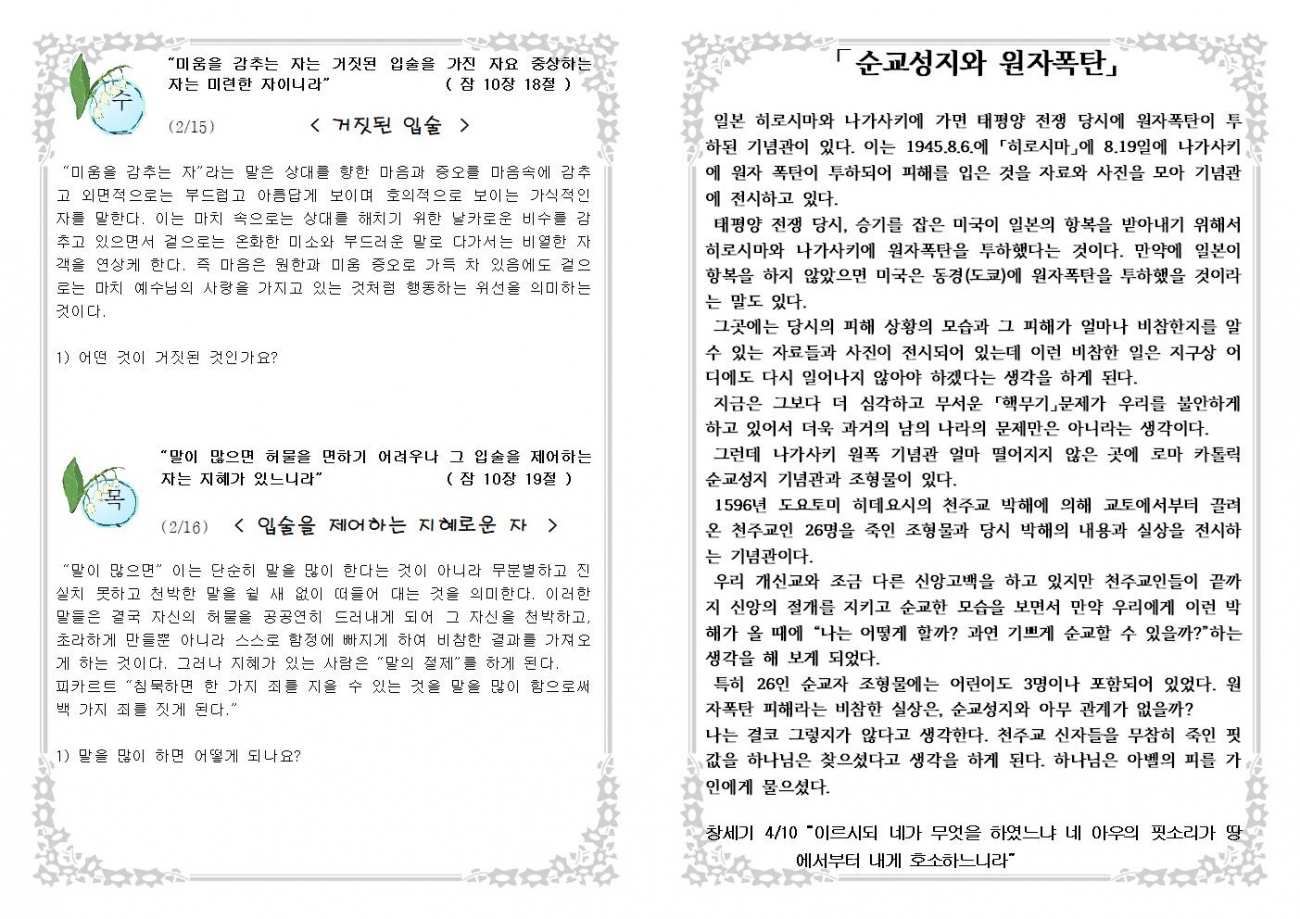 “미움을 감추는 자는 거짓된 입술을 가진 자요 중상하는
자는 미련한 자이니라” ( 잠 10장 18절 )
수
(2/15) < 거짓된 입술 >
“미움을 감추는 자”라는 말은 상대를 향한 마음과 증오를 마음속에 감추
고 외면적으로는 부드럽고 아름답게 보이며 호의적으로 보이는 가식적인
자를 말한다. 이는 마치 속으로는 상대를 해치기 위한 날카로운 비수를 감
추고 있으면서 겉으로는 온화한 미소와 부드러운 말로 다가서는 비열한 자
객을 연상케 한다. 즉 마음은 원한과 미움 증오로 가득 차 있음에도 겉으
로는 마치 예수님의 사랑을 가지고 있는 것처럼 행동하는 위선을 의미하는
것이다.
1) 어떤 것이 거짓된 것인가요?
“말이 많으면 허물을 면하기 어려우나 그 입술을 제어하는
자는 지혜가 있느니라” ( 잠 10장 19절 )
목
(2/16) < 입술을 제어하는 지혜로운 자 >
“말이 많으면” 이는 단순히 말을 많이 한다는 것이 아니라 무분별하고 진
실치 못하고 천박한 말을 쉴 새 없이 떠들어 대는 것을 의미한다. 이러한
말들은 결국 자신의 허물을 공공연히 드러내게 되어 그 자신을 천박하고,
초라하게 만들뿐 아니라 스스로 함정에 빠지게 하여 비참한 결과를 가져오
게 하는 것이다. 그러나 지혜가 있는 사람은 “말의 절제”를 하게 된다.
피카르트 “침묵하면 한 가지 죄를 지을 수 있는 것을 말을 많이 함으로써
백 가지 죄를 짓게 된다.”
1) 말을 많이 하면 어떻게 되나요?
「 순교성지와 원자폭탄」
일본 히로시마와 나가사키에 가면 태평양 전쟁 당시에 원자폭탄이 투
하된 기념관이 있다. 이는 1945.8.6.에 「히로시마」에 8.19일에 나가사키
에 원자 폭탄이 투하되어 피해를 입은 것을 자료와 사진을 모아 기념관
에 전시하고 있다.
태평양 전쟁 당시, 승기를 잡은 미국이 일본의 항복을 받아내기 위해서
히로시마와 나가사키에 원자폭탄을 투하했다는 것이다. 만약에 일본이
항복을 하지 않았으면 미국은 동경(도쿄)에 원자폭탄을 투하했을 것이라
는 말도 있다.
그곳에는 당시의 피해 상황의 모습과 그 피해가 얼마나 비참한지를 알
수 있는 자료들과 사진이 전시되어 있는데 이런 비참한 일은 지구상 어
디에도 다시 일어나지 않아야 하겠다는 생각을 하게 된다.
지금은 그보다 더 심각하고 무서운 「핵무기」문제가 우리를 불안하게
하고 있어서 더욱 과거의 남의 나라의 문제만은 아니라는 생각이다.
그런데 나가사키 원폭 기념관 얼마 떨어지지 않은 곳에 로마 카톨릭
순교성지 기념관과 조형물이 있다.
1596년 도요토미 히데요시의 천주교 박해에 의해 교토에서부터 끌려
온 천주교인 26명을 죽인 조형물과 당시 박해의 내용과 실상을 전시하
는 기념관이다.
우리 개신교와 조금 다른 신앙고백을 하고 있지만 천주교인들이 끝까
지 신앙의 절개를 지키고 순교한 모습을 보면서 만약 우리에게 이런 박
해가 올 때에 “나는 어떻게 할까? 과연 기쁘게 순교할 수 있을까?”하는
생각을 해 보게 되었다.
특히 26인 순교자 조형물에는 어린이도 3명이나 포함되어 있었다. 원
자폭탄 피해라는 비참한 실상은, 순교성지와 아무 관계가 없을까?
나는 결코 그렇지가 않다고 생각한다. 천주교 신자들을 무참히 죽인 핏
값을 하나님은 찾으셨다고 생각을 하게 된다. 하나님은 아벨의 피를 가
인에게 물으셨다.
창세기 4/10 “이르시되 네가 무엇을 하였느냐 네 아우의 핏소리가 땅
에서부터 내게 호소하느니라”